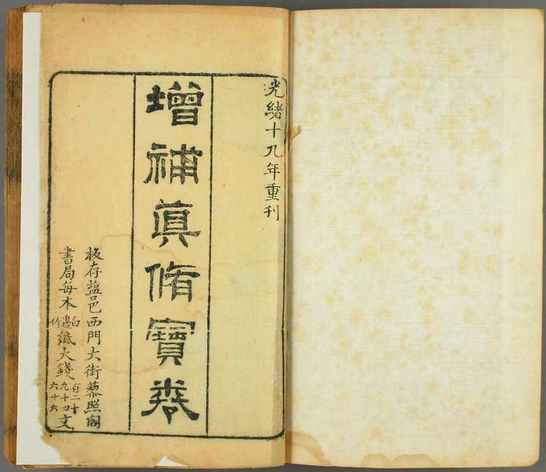 光緒十九年重刊
增補眞脩寶卷
板存盐邑西門大街藜照阁
書局每本白邊竹紙大錢百二十九十四六十六文